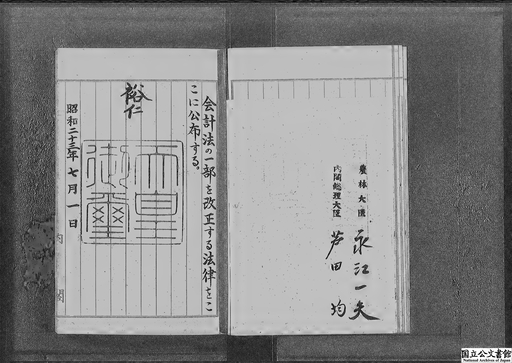 農林大臣 永江一夫
内閣総理大臣 芦田均
会計法の一部を改正する法律をこ
こに公布する。
裕仁
天皇
御璽
昭和二十三年七月一日
内閣
国立公文書館
National Archives of Japan